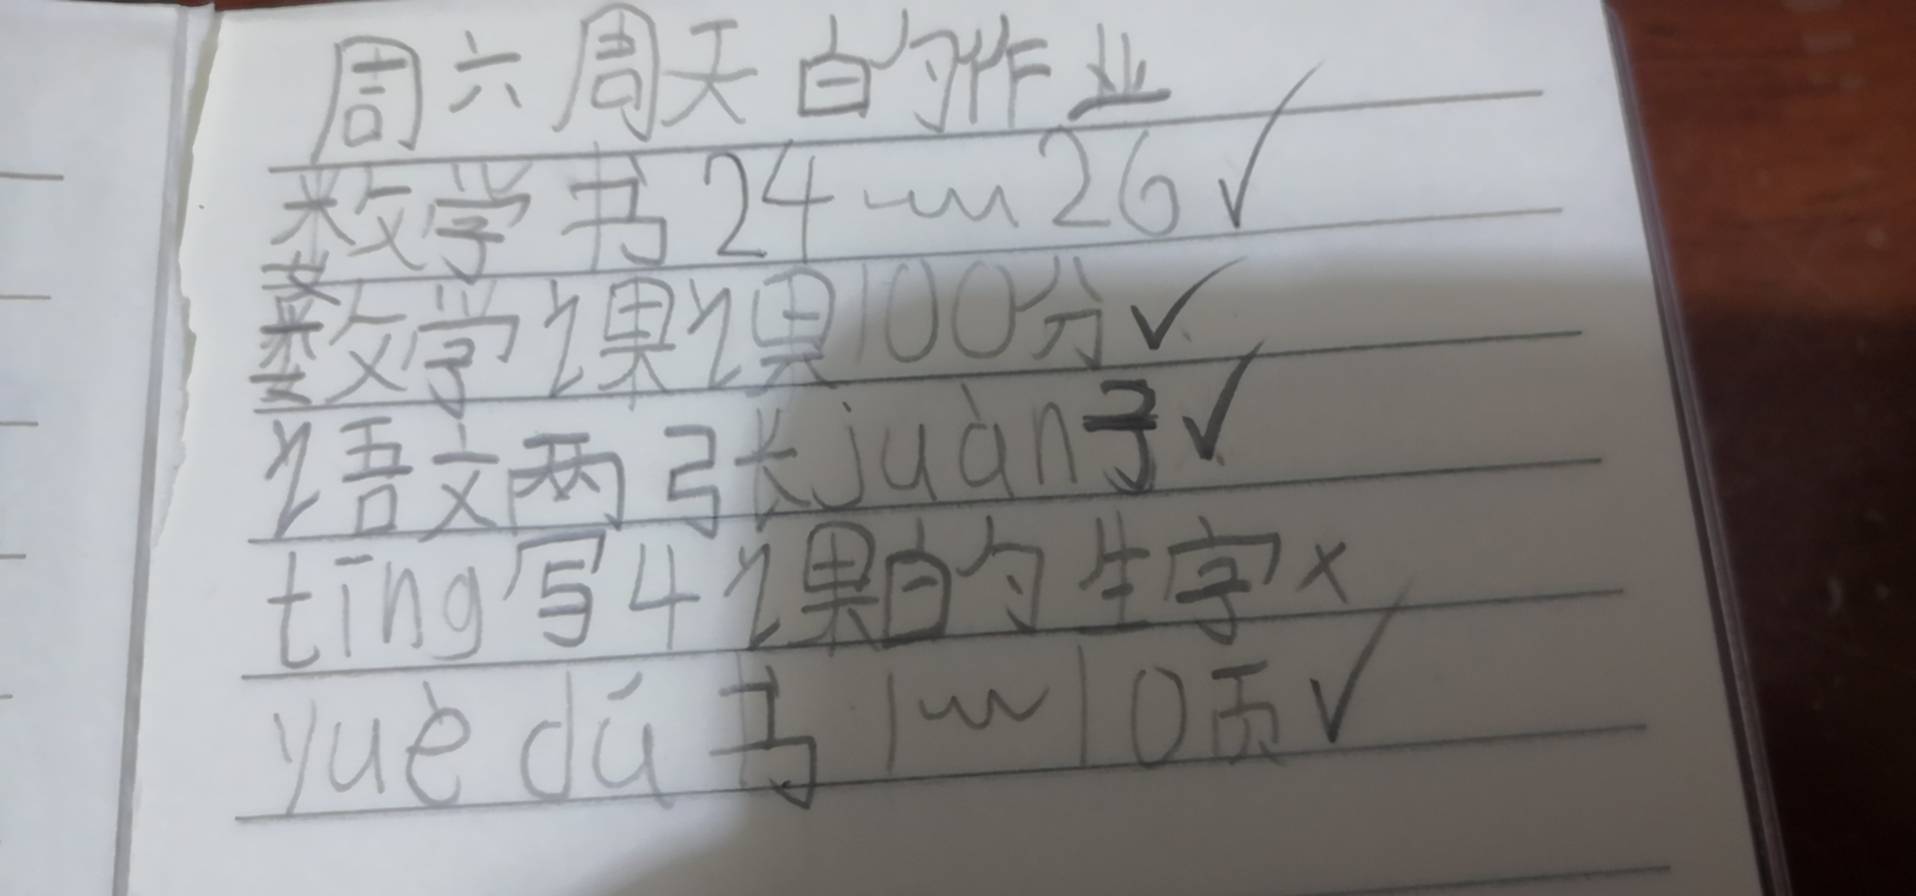 周六周天的作业
数学书24~26✓
数学课课100分✓
语文两张juàn子✓
tīng写4课的生字×
yuè dú书1~10页✓